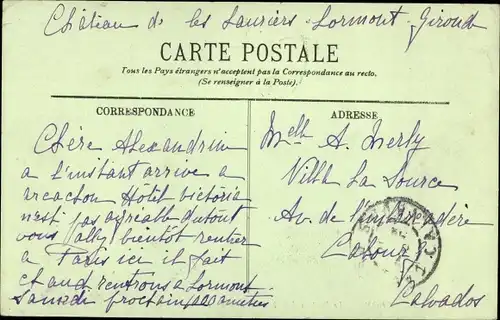 Château de les Lauriers Lormont Gironde
CARTE POSTALE
Tous les Pays étrangers n'acceptent pas la Correspondance au recto.
(Se renseigner à la Poste).
CORRESPONDANCE
ADRESSE
Chère Alexandrine
a l'instant arrive a
arcachon Hôtel Victoria
n'est pas agreable du tout
vous allez bientôt rentrer
a Paris ici il fait
chaud rentrons a Lormont
Samedi prochain amitiés
Melle A. Merly
Villa La Source
Av. de l'
Calvados